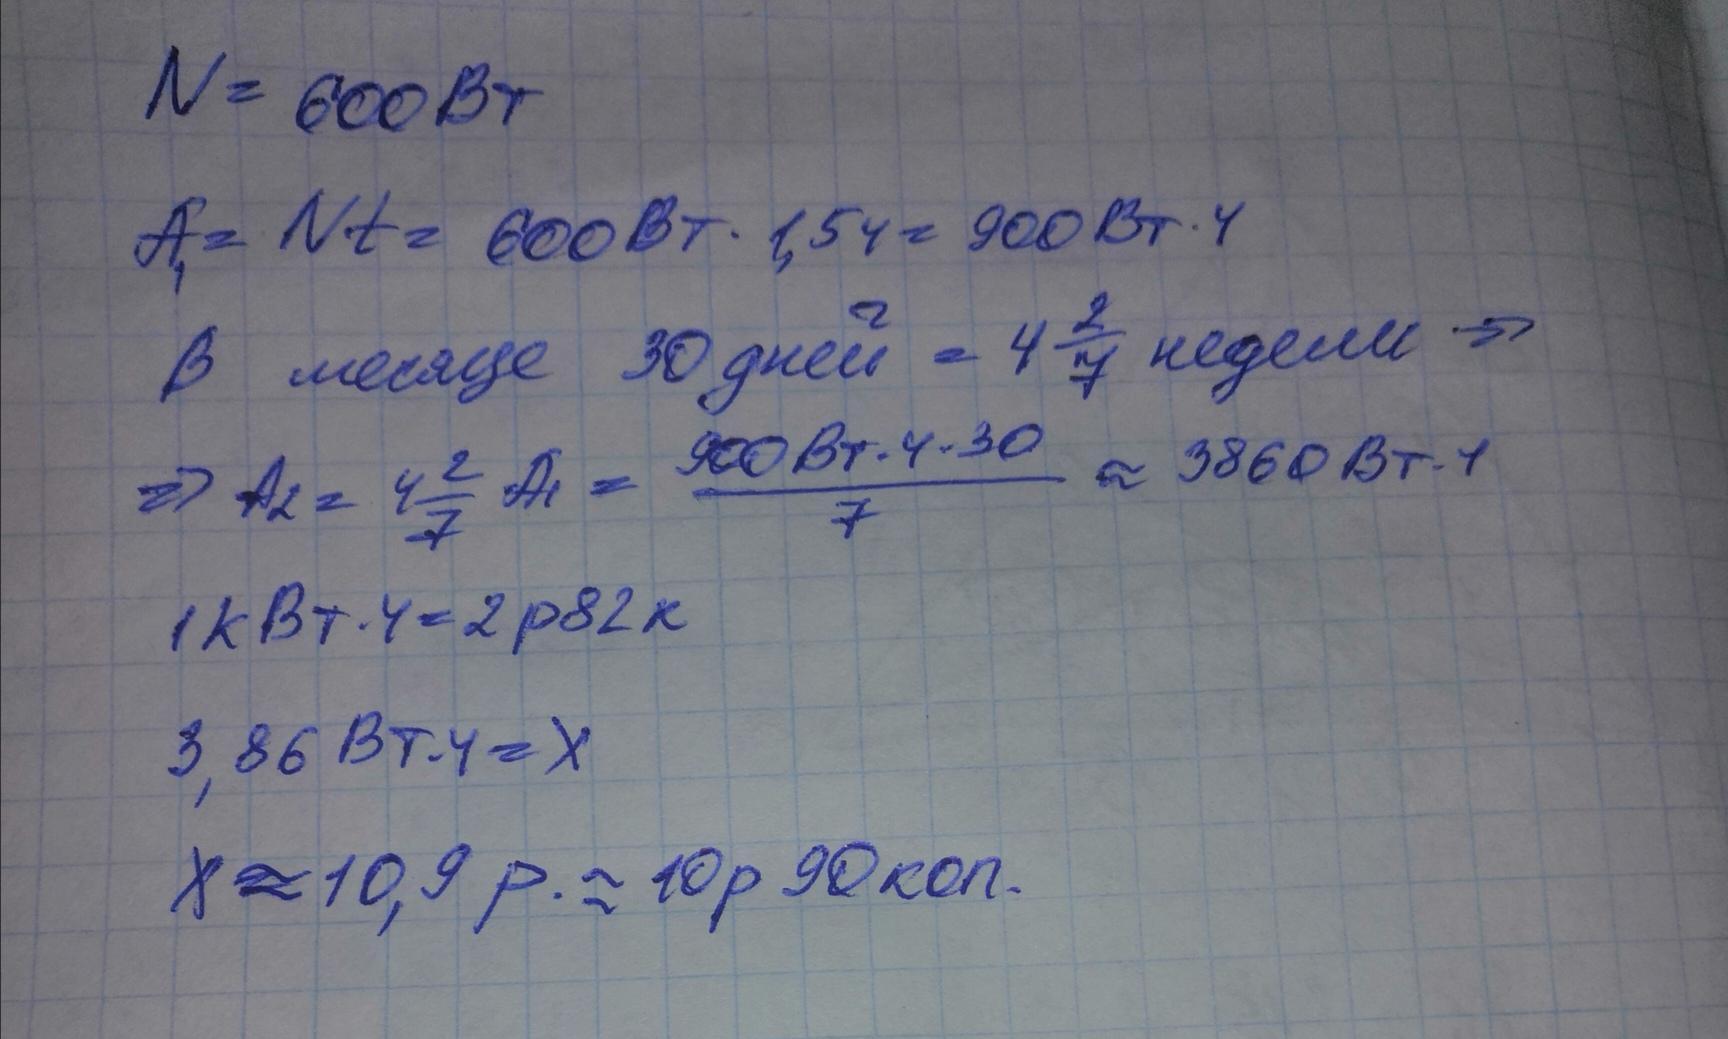 N = 600 Вт
A₁ = Nt = 600 Вт · 1,5 ч = 900 Вт · ч
В месяце 30 дней = 4 2/7 недели ⇒
⇒ A₂ = 4 2/7 A₁ = 900 Вт · ч · 30 / 7 ≈ 3860 Вт · ч
1 кВт · ч = 2 р 82 к
3,86 Вт · ч = X
X ≈ 10,9 р. ≈ 10 р 90 коп.